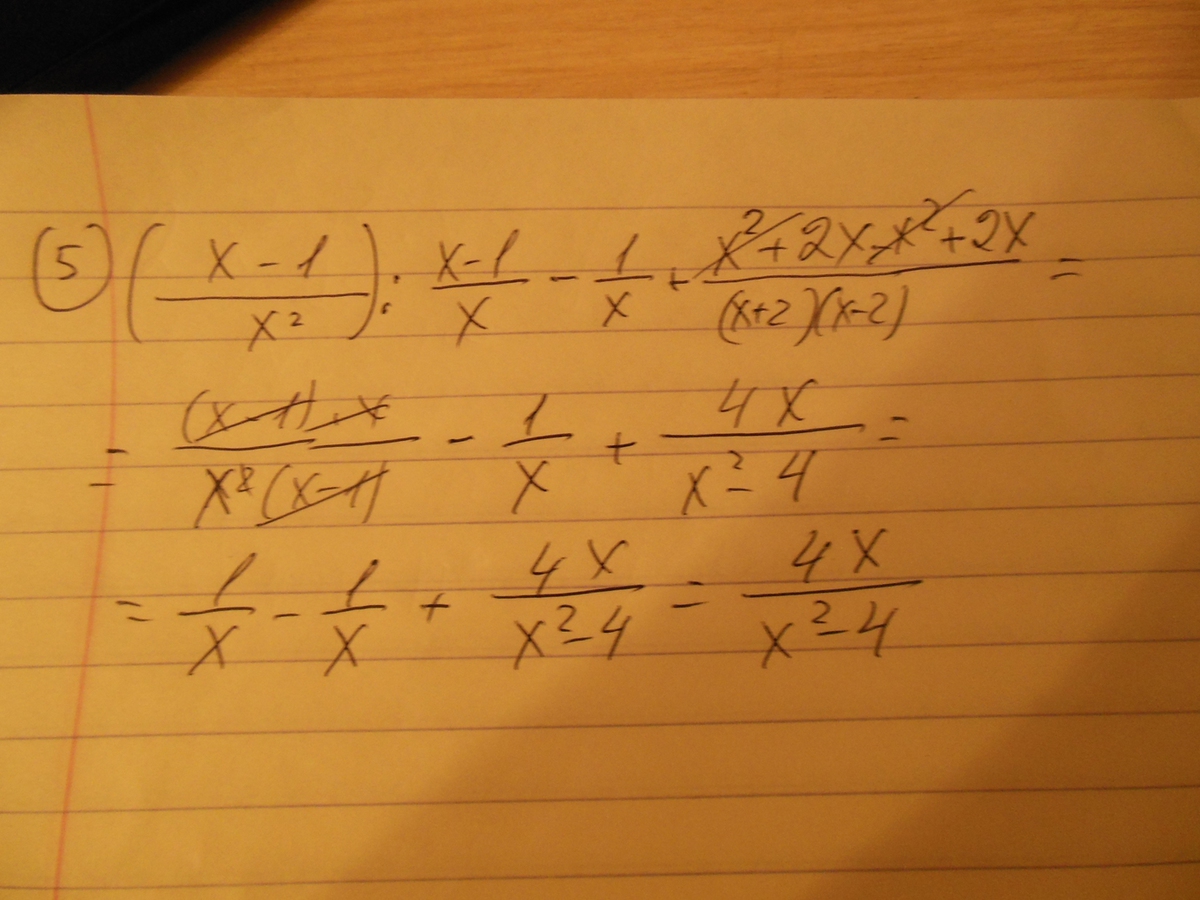 ⑤ ((x-1)/x²) : (x-1)/x - 1/x + (x²+2x-x²+2x)/((x+2)(x-2)) =
= ((x-1)·x)/(x²(x-1)) - 1/x + 4x/(x²-4) =
= 1/x - 1/x + 4x/(x²-4) = 4x/(x²-4)